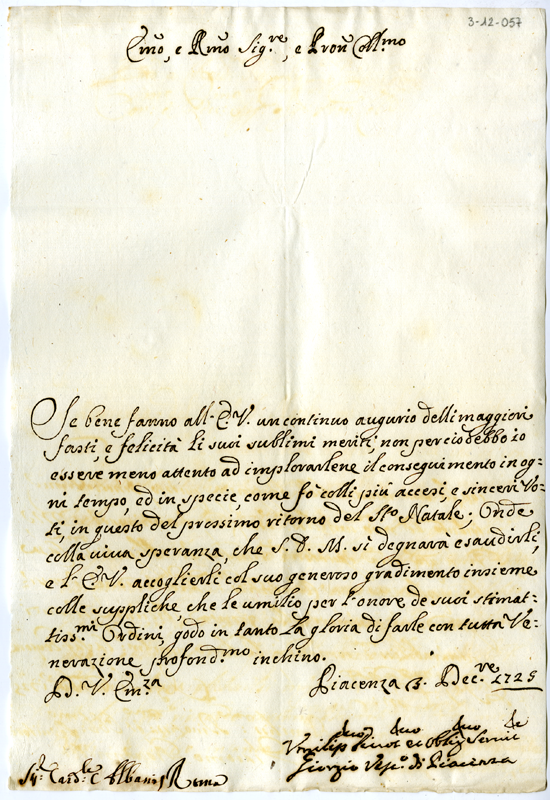 3-12-057
Emo, e Rmo Sig.re, e Pron Coll.mo
Se bene fanno all'E.V. un continuo augurio delli maggiori
fasti, e felicità li suoi sublimi meriti, non perciò debbo io
essere meno attento ad implorarlene il conseguimento in og=
ni tempo, ed in specie, come fò colli più accesi, e sinceri Vo=
ti, in questo del prossimo ritorno del Sto Natale; Onde
colla viva speranza, che S. D. M. si degnarà esaudirli,
e l'E.V. accoglierli col suo generoso gradimento insieme
colle suppliche, che le umilio per l'onore de suoi stimat=
tiss.mi Ordini, godo in tanto la gloria di farle con tutta Ve=
nerazione profond.mo inchino.
D. V. Em.za
Piacenza 3. Dec.re 1725
Giorgio Vesc.o di Piacenza
Sig. Card.le Albani Roma